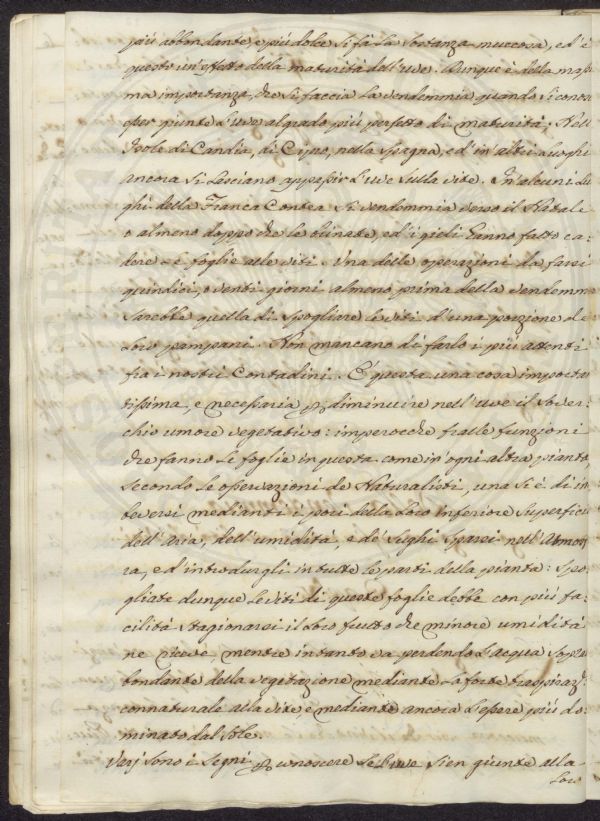 più abbondante, e più dolce si fà la sostanza muccosa, ed'è
questo un'effetto della maturità dell'uve. Dunque è della mas
ma importanza, che si faccia la vendemmia quando si conos
esser giunte l'uve al grado più perfetto di maturità. Nell'
Isole di Candia, di Cipro, nella Spagna, ed'in'altri Luoghi
ancora si lasciano appassir l'uve sulla vite. In'alcuni Lu
ghi della Franca Contea si vendemmia verso il Natale
o almeno doppo che le brinate, ed'i gieli hanno fatto ca
dere le foglie alle viti. Una delle operazioni da farsi
quindici, o venti giorni almeno prima della vendemm
sarebbe quella di spogliare le viti d'una porzione de
loro pampani. Non mancano di farlo i più attenti
fra i nostri Contadini. E' questa una cosa importa
tissima, e necessaria p diminuire nell'uve il sover
chio umore vegetativo: imperocche fralle funzioni
che fanno le foglie in questa come in'ogni altra pianta,
secondo le osservazioni de Naturalisti, una si è di im
beversi medianti i pori della loro inferiore superficie
dell'aria, dell'umidità, e de' sughi sparsi nell'Atmosf
ra, ed'introdurgli in tutte le parti della pianta: Spo
gliate dunque le viti di queste foglie debbe con più fa
cilità stagionarsi il loro frutto che minore umidità
ne riceve, mentre intanto va perdendo l'acqua sopra
bondante della vegetazione mediante la forte traspiraz
connaturale alla vite, e mediante ancora l'essere più do
minato dal sole.
Varj sono i segni p conoscere se l'uve sien giunte alla
loro